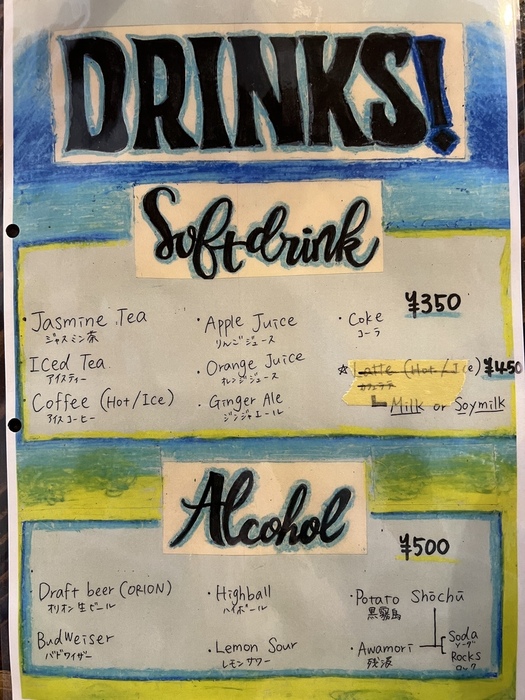 DRINKS!
Softdrink
¥350
・Jasmine Tea
ジャスミン茶
・Apple Juice
りんごジュース
・Coke
コーラ
Iced Tea
アイスティー
・Orange Juice
オレンジジュース
☆ Latte (Hot/Ice) ¥450
カフェラテ
Milk or Soymilk
・Coffee (Hot/Ice)
アイスコーヒー
・Ginger Ale
ジンジャエール
Alcohol
¥500
・Draft beer (ORION)
オリオン生ビール
・Highball
ハイボール
・Potato Shōchū
黒霧島
Budweiser
バドワイザー
・Lemon Sour
レモンサワー
・Awamori
残波
Soda
ソーダ
Rocks
ロック